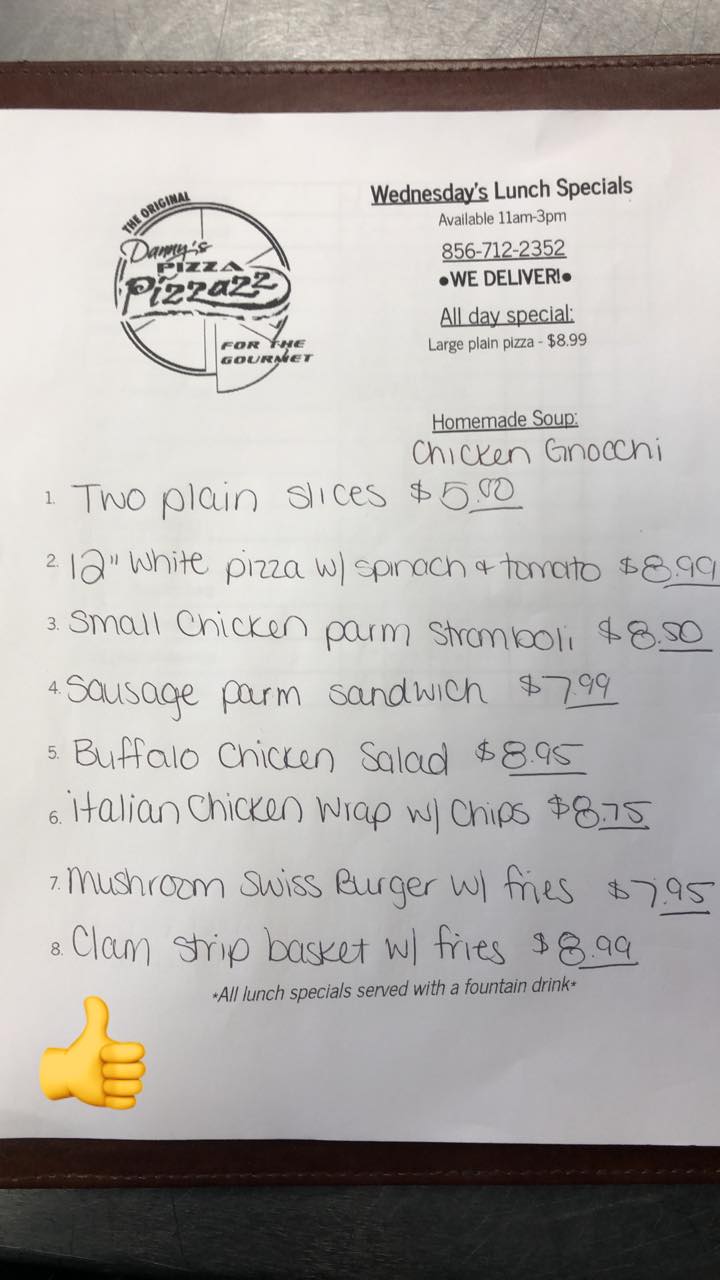 THE ORIGINAL
Danny's
PIZZA
Pizzazz
FOR THE
GOURMET
Wednesday's Lunch Specials
Available 11am-3pm
856-712-2352
•WE DELIVER!•
All day special:
Large plain pizza - $8.99
Homemade Soup:
Chicken Gnocchi
1. Two plain slices $5.00
2. 12" White pizza w/ spinach + tomato $8.99
3. Small Chicken parm Stromboli $8.50
4. Sausage parm sandwich $7.99
5. Buffalo Chicken Salad $8.95
6. italian Chicken Wrap w/ Chips $8.75
7. Mushroom Swiss Burger w/ fries $7.95
8. Clam strip basket w/ fries $8.99
*All lunch specials served with a fountain drink*